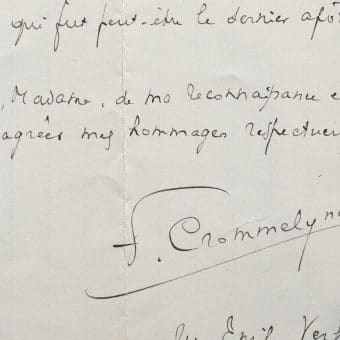 qui fut peut-être le dernier apô
, Madame, de ma reconnaissance e
agréer mes hommages respectue
F. Crommelyn
Emil Verh